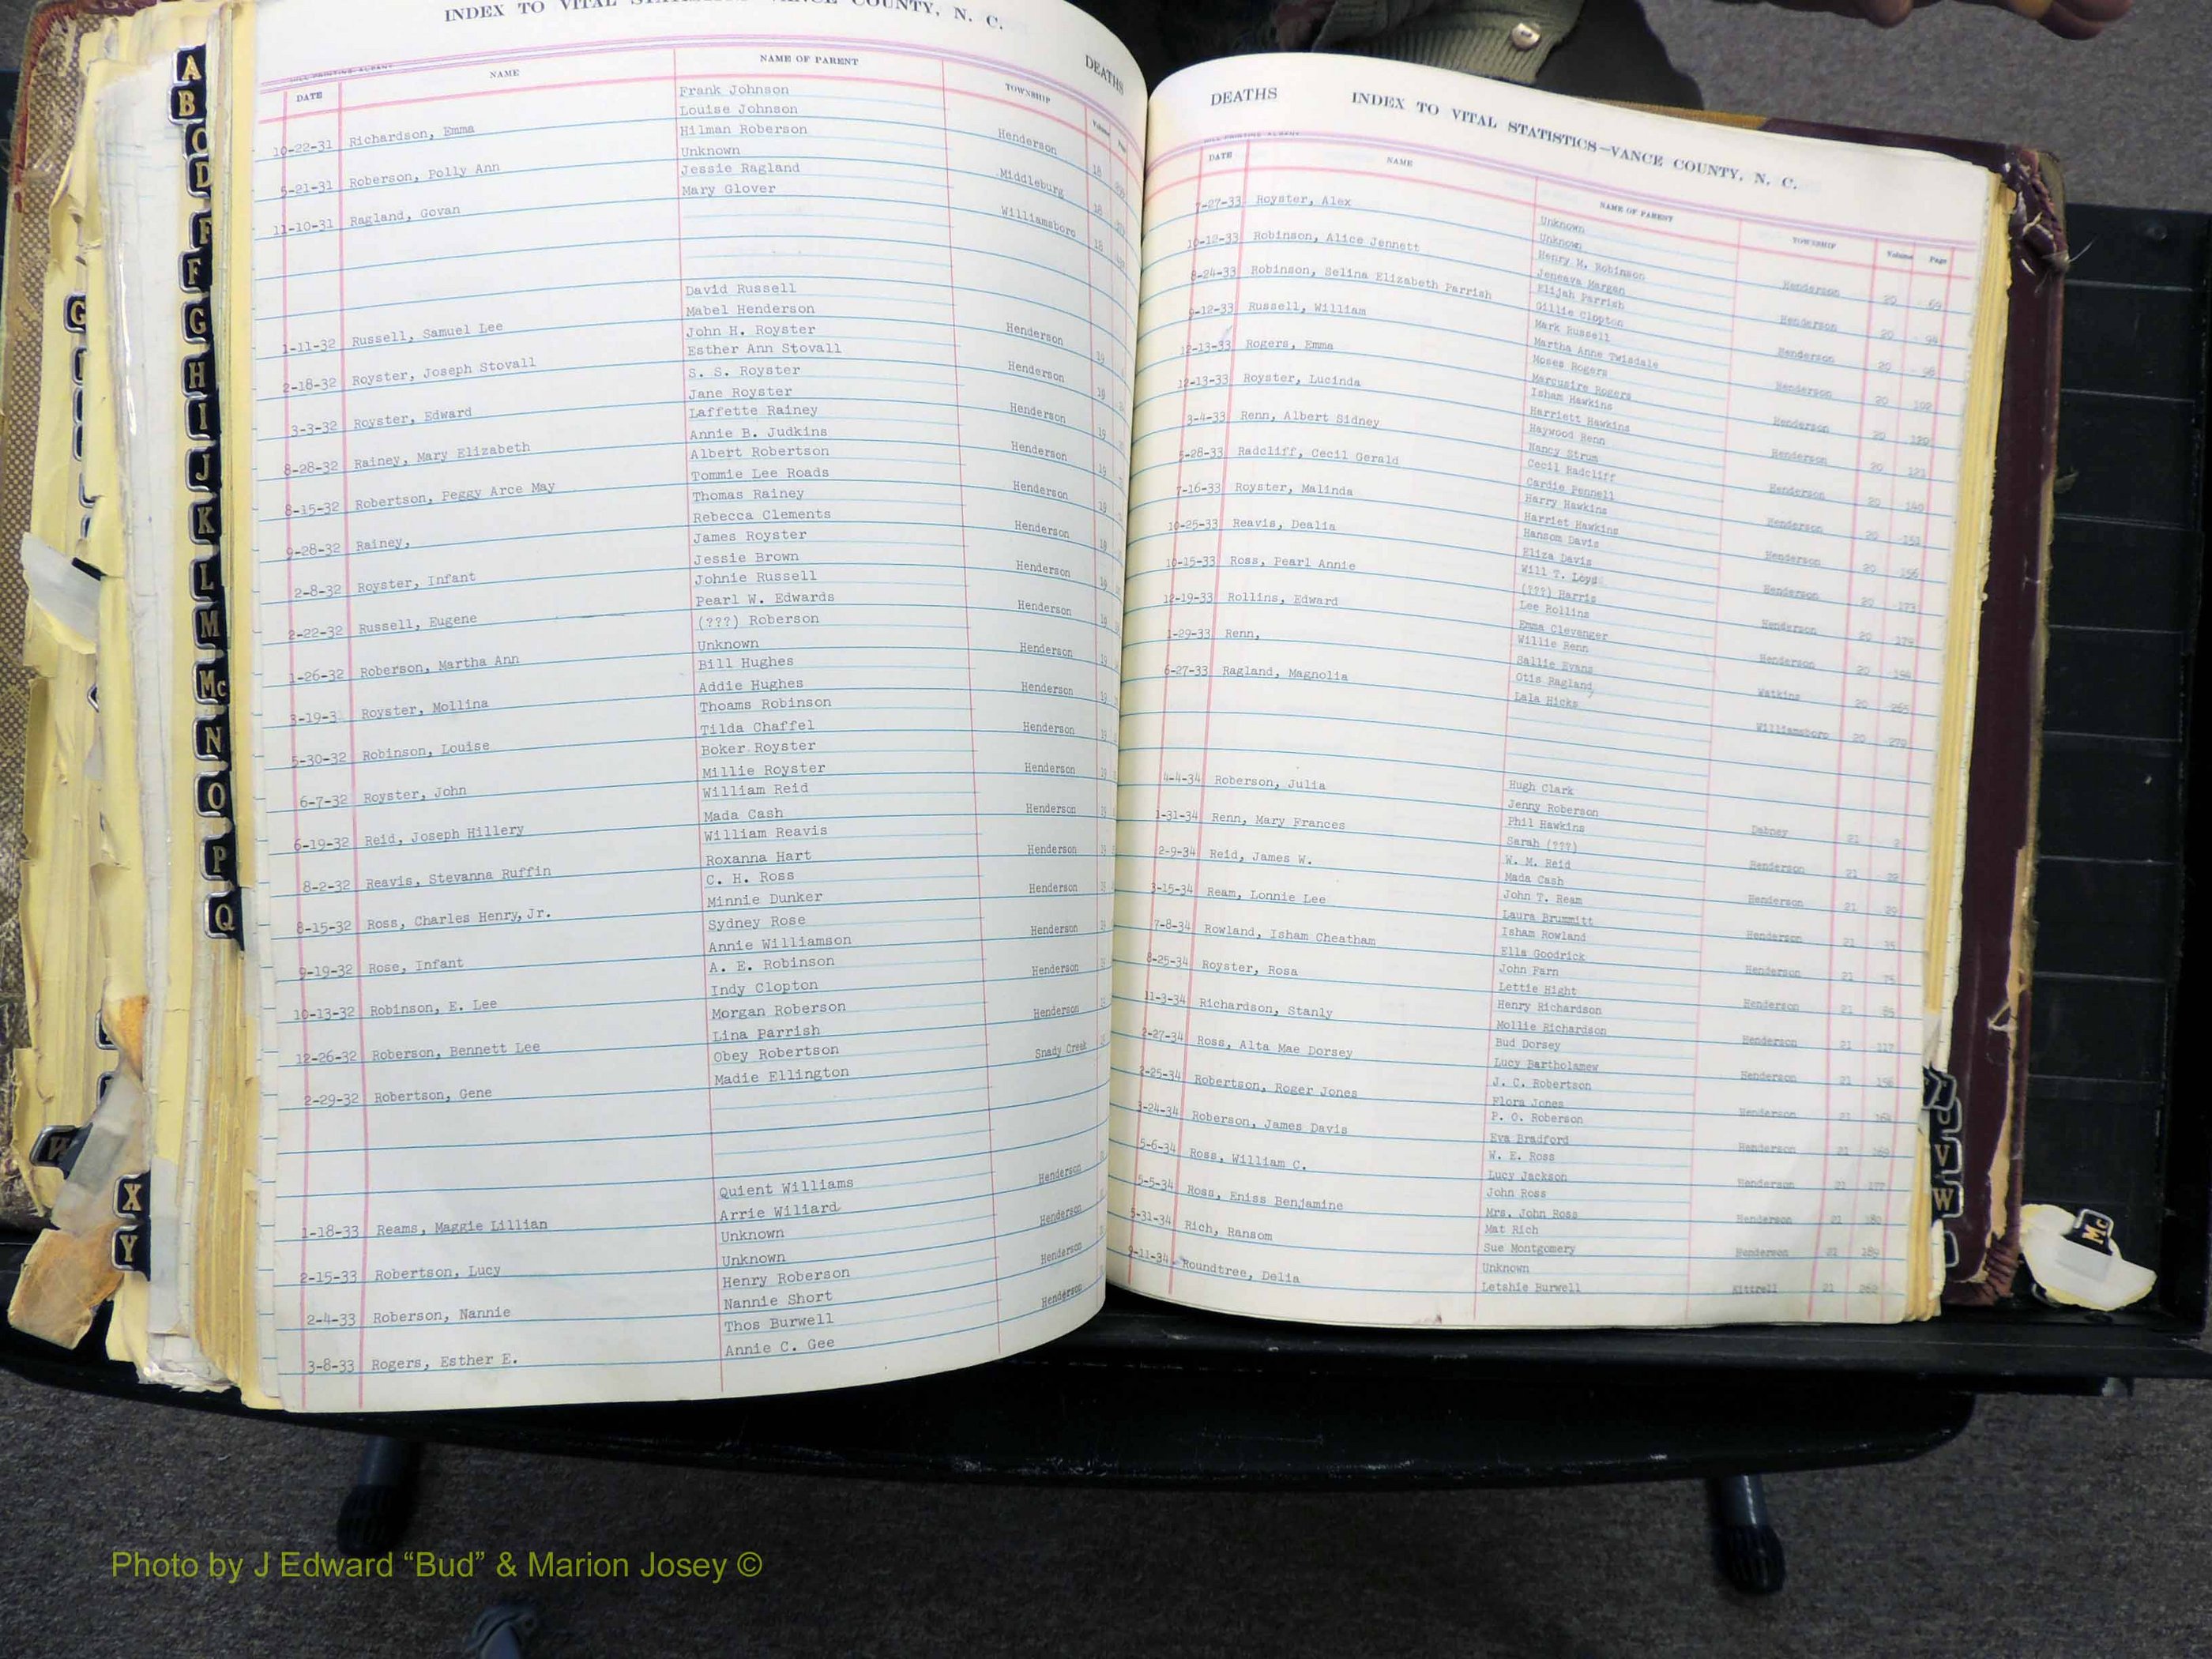 INDEX TO VITAL STATISTICS VANCE COUNTY, N. C.
DEATHS
DATE NAME NAME OF PARENT TOWNSHIP Volume
Frank Johnson
Louise Johnson
10-22-31 Richardson, Emma Henderson 18
Hilman Roberson
Unknown
5-21-31 Roberson, Polly Ann Middleburg 18
Jessie Ragland
Mary Glover
11-10-31 Ragland, Govan Williamsboro 18
David Russell
Mabel Henderson
1-11-32 Russell, Samuel Lee Henderson 19
John H. Royster
Esther Ann Stovall
2-18-32 Royster, Joseph Stovall Henderson 19
S. S. Royster
Jane Royster
3-3-32 Royster, Edward Henderson 19
Laffette Rainey
Annie B. Judkins
8-28-32 Rainey, Mary Elizabeth Henderson 19
Albert Robertson
Tommie Lee Roads
8-15-32 Robertson, Peggy Arce May Henderson 19
Thomas Rainey
Rebecca Clements
9-28-32 Rainey, Henderson 19
James Royster
Jessie Brown
2-8-32 Royster, Infant Henderson 19
Johnie Russell
Pearl W. Edwards
2-22-32 Russell, Eugene Henderson 19
(???) Roberson
Unknown
1-26-32 Roberson, Martha Ann Henderson 19
Bill Hughes
Addie Hughes
3-19-3 Royster, Mollina Henderson 19
Thoams Robinson
Tilda Chaffel
5-30-32 Robinson, Louise Henderson
Boker Royster
Millie Royster
6-7-32 Royster, John Henderson
William Reid
Mada Cash
6-19-32 Reid, Joseph Hillery Henderson
William Reavis
Roxanna Hart
8-2-32 Reavis, Stevanna Ruffin Henderson
C. H. Ross
Minnie Dunker
8-15-32 Ross, Charles Henry, Jr. Henderson
Sydney Rose
Annie Williamson
9-19-32 Rose, Infant Henderson
A. E. Robinson
Indy Clopton
10-13-32 Robinson, E. Lee Henderson
Morgan Roberson
Lina Parrish
12-26-32 Roberson, Bennett Lee Henderson
Obey Robertson
Madie Ellington
2-29-32 Robertson, Gene Snady Creek
Quient Williams
Arrie Williard
1-18-33 Reams, Maggie Lillian Henderson
Unknown
Unknown
2-15-33 Robertson, Lucy Henderson
Henry Roberson
Nannie Short
2-4-33 Roberson, Nannie Henderson
Thos Burwell
Annie C. Gee
3-8-33 Rogers, Esther E. Henderson
DEATHS INDEX TO VITAL STATISTICS—VANCE COUNTY, N. C.
DATE NAME NAME OF PARENT TOWNSHIP Volume Page
7-27-33 Royster, Alex Unknown
Unknown Henderson 20 69
10-12-33 Robinson, Alice Jennett Henry M. Robinson
Jeneava Margan Henderson 20 94
8-24-33 Robinson, Selina Elizabeth Parrish Elijah Parrish
Gillie Clopton Henderson 20 98
9-12-33 Russell, William Mark Russell
Martha Anne Twisdale Henderson 20 102
12-13-33 Rogers, Emma Moses Rogers
Marcusire Rogers Henderson 20 120
12-13-33 Royster, Lucinda Isham Hawkins
Harriett Hawkins Henderson 20 121
3-4-33 Renn, Albert Sidney Haywood Renn
Nancy Strum Henderson 20 140
5-28-33 Radcliff, Cecil Gerald Cecil Radcliff
Cardie Pennell Henderson 20 151
7-16-33 Royster, Malinda Harry Hawkins
Harriet Hawkins Henderson 20 156
10-25-33 Reavis, Dealia Hansom Davis
Eliza Davis Henderson 20 173
10-15-33 Ross, Pearl Annie Will T. Loyd
(???) Harris Henderson 20
12-19-33 Rollins, Edward Lee Rollins
Emma Clevenger Henderson 20
1-29-33 Renn, Willie Renn
Sallie Evans Watkins 20 265
6-27-33 Ragland, Magnolia Otis Ragland
Lala Hicks Williamsboro 20 279
4-4-34 Roberson, Julia Hugh Clark
Jenny Roberson Dabney 21 2
1-31-34 Renn, Mary Frances Phil Hawkins
Sarah (???) Henderson 21 22
2-9-34 Reid, James W. W. M. Reid
Mada Cash Henderson 21 29
3-15-34 Ream, Lonnie Lee John T. Ream
Laura Brummitt Henderson 21 35
7-8-34 Rowland, Isham Cheatham Isham Rowland
Ella Goodrick Henderson 21 75
8-25-34 Royster, Rosa John Farn
Lettie Hight Henderson 21 85
11-3-34 Richardson, Stanly Henry Richardson
Mollie Richardson Henderson 21 117
2-27-34 Ross, Alta Mae Dorsey Bud Dorsey
Lucy Bartholamew Henderson 21 156
2-25-34 Robertson, Roger Jones J. C. Robertson
Flora Jones Henderson 21 164
3-24-34 Roberson, James Davis P. O. Roberson
Eva Bradford Henderson 21 169
5-6-34 Ross, William C. W. E. Ross
Lucy Jackson Henderson 21 177
5-5-34 Ross, Eniss Benjamine John Ross
Mrs. John Ross Henderson 21 180
5-31-34 Rich, Ransom Mat Rich
Sue Montgomery Henderson 21 189
9-11-34 Roundtree, Delia Unknown
Letshie Burwell Kittrell 21 262
A
B
C
D
F
F
G
H
I
J
K
L
M
Mc
N
O
P
Q
G
W
X
Y
V
W
Mc
Photo by J Edward “Bud” & Marion Josey ©